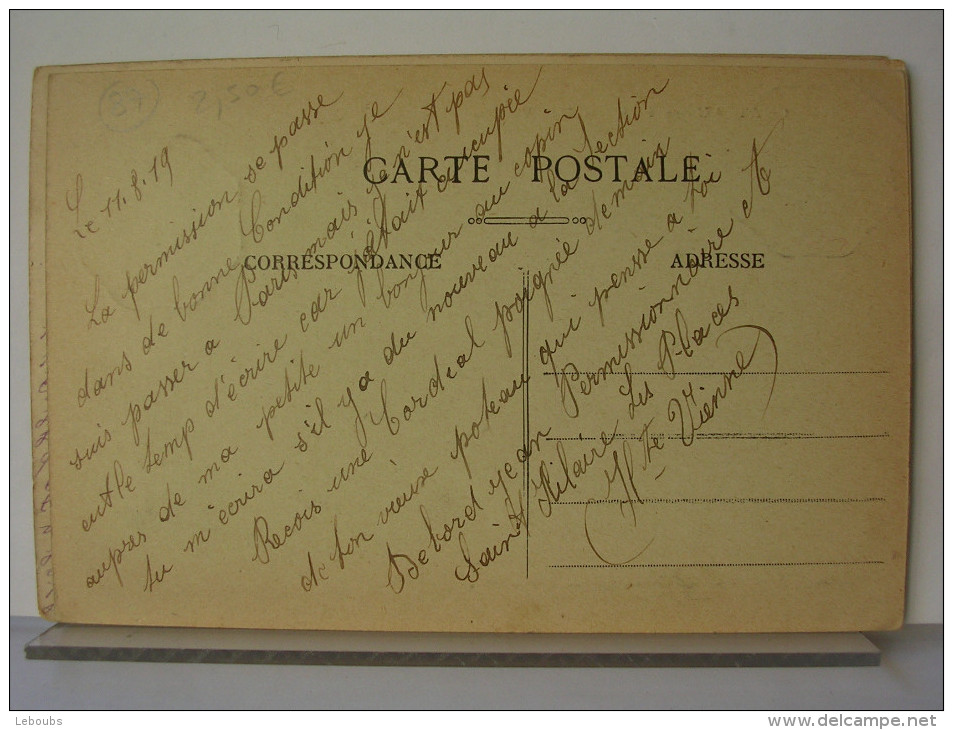 54
2,50 €
CARTE POSTALE
CORRESPONDANCE
ADRESSE
Le 11.8.19
La permission se passe
dans de bonne Condition je
suis passer a Paris mais je n'est pas
eut le temp d'écrire car j'était ocupée
aupres de ma petite un bonjour au copin
tu m'écrira s'il y a du nouveau a la section
Recois une Cordial poignée de main
de ton vieux poteau qui pensse a toi
Debord jean Permissionnaire A
Saint Hilaire Les Places
Hte Vienne
Leboubs
www.delcampe.net